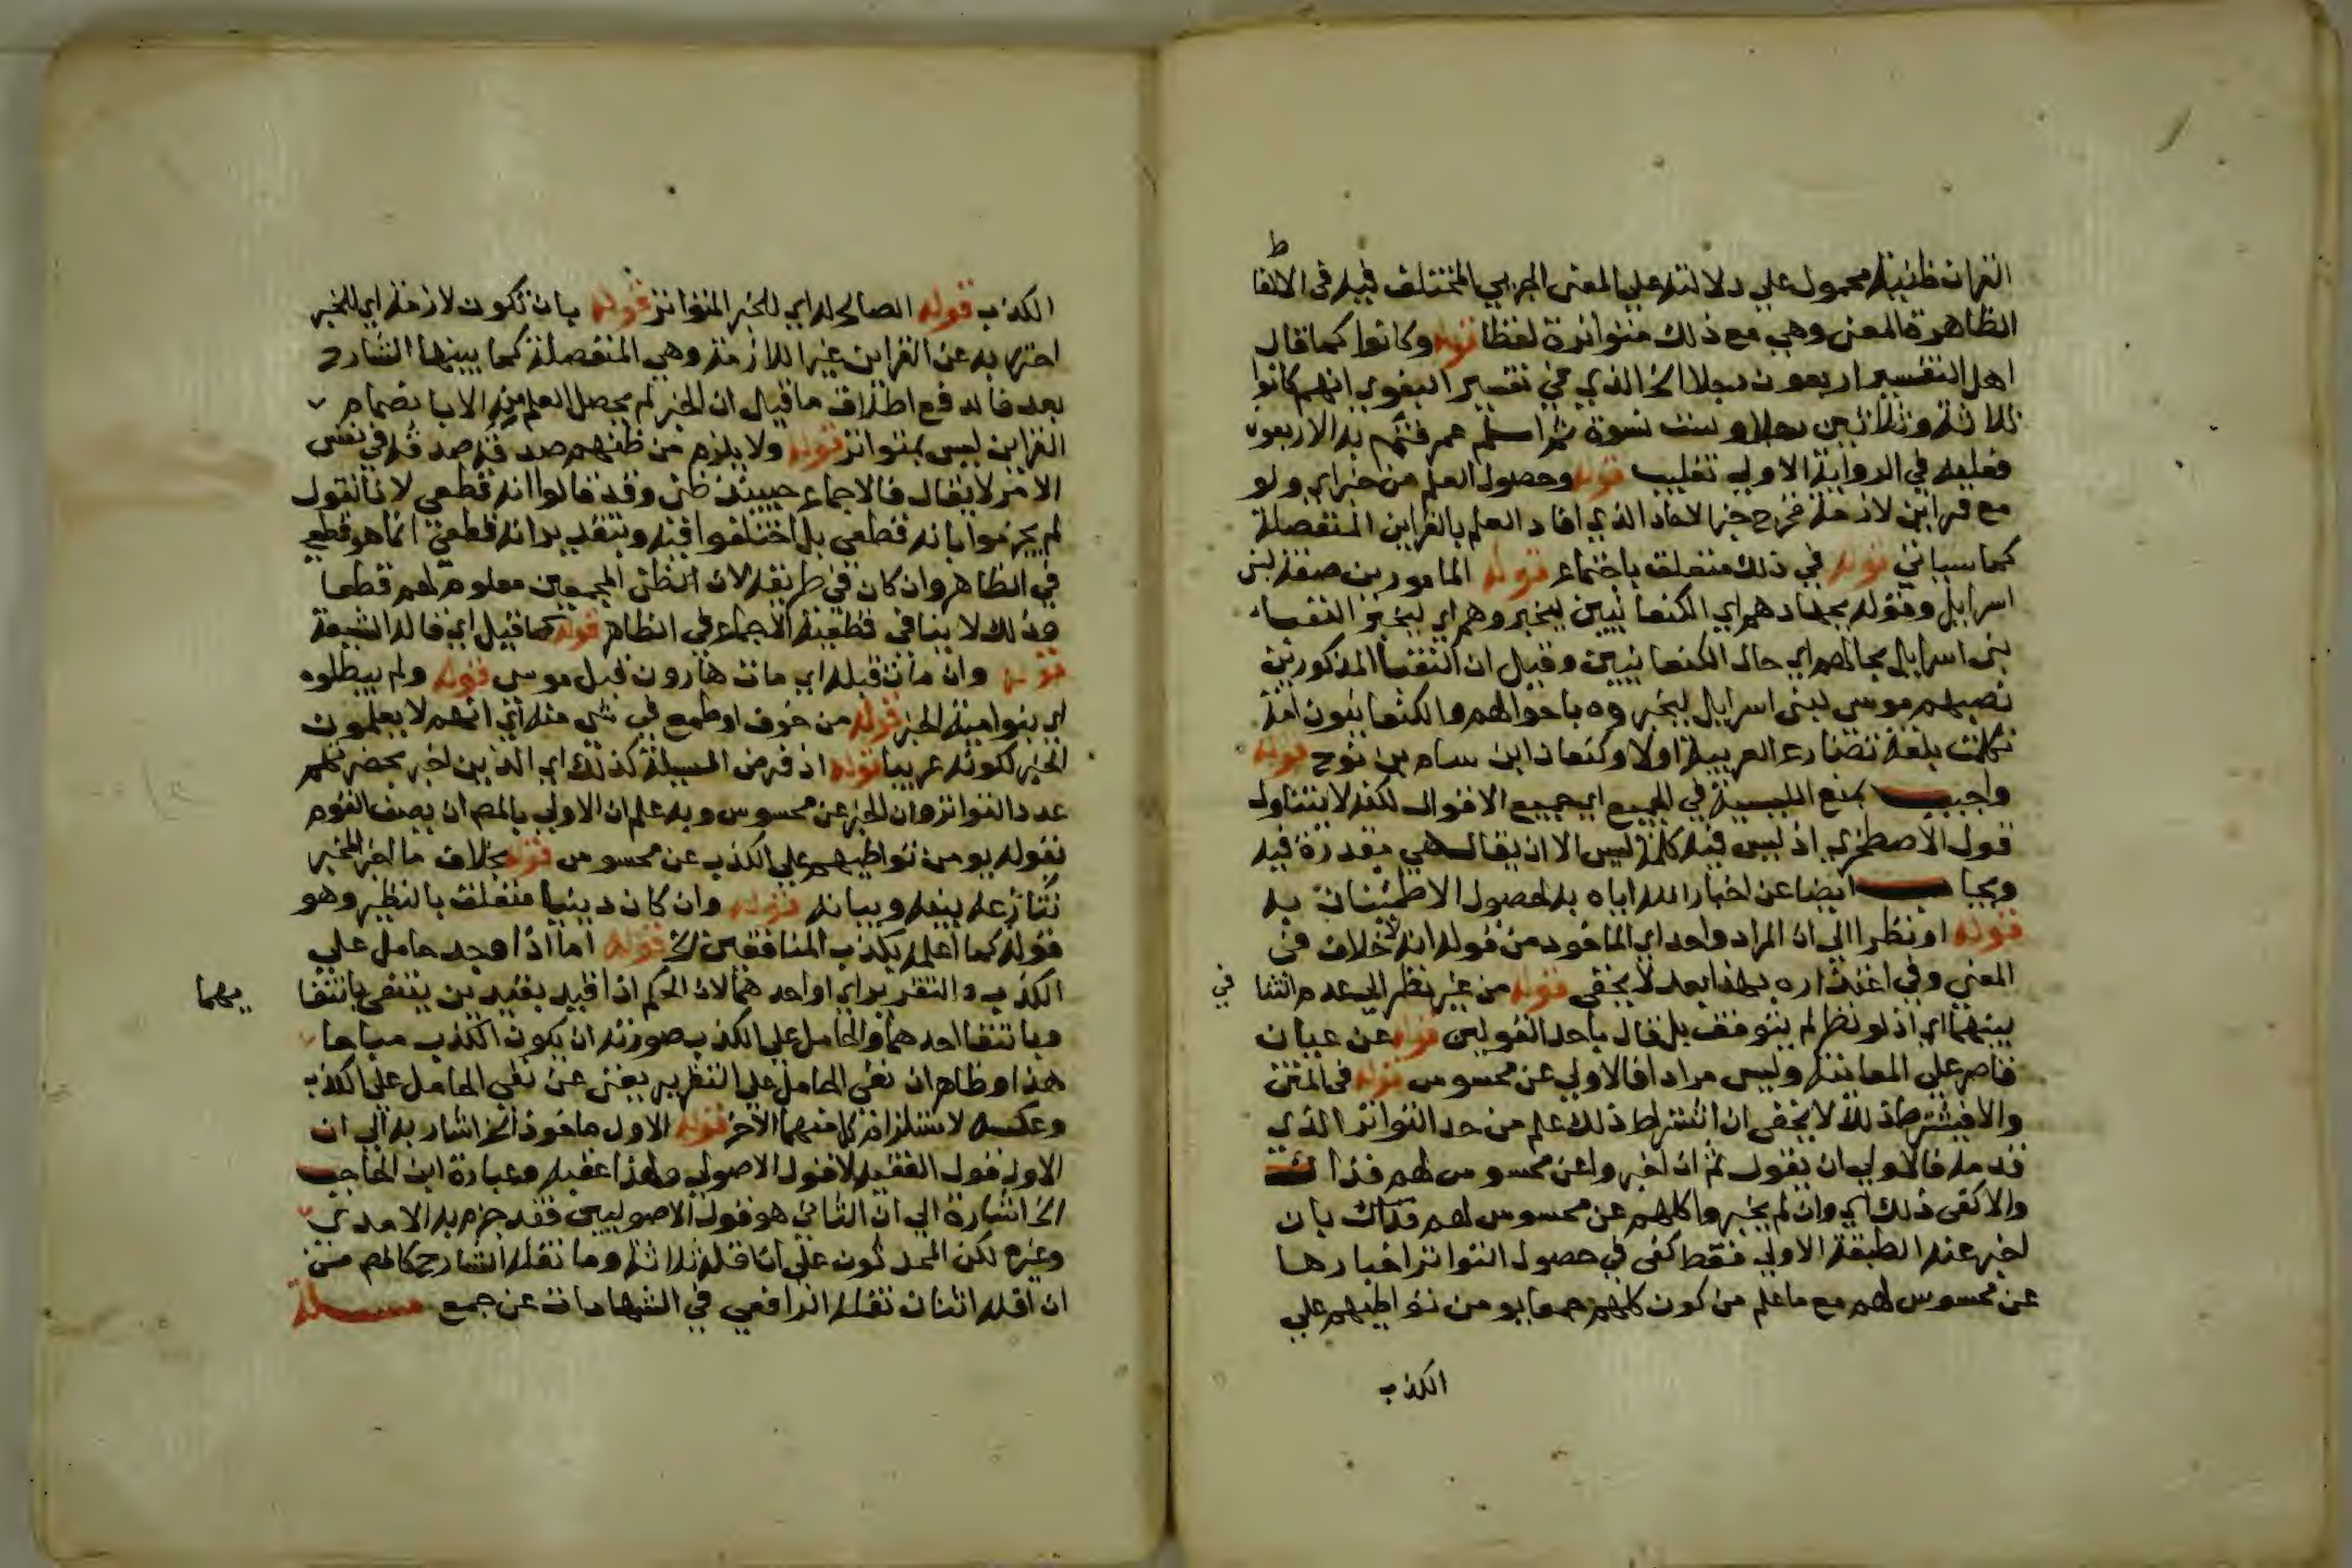 القران ظنية محمول علي دلالته علي المعني الجزيي المختلف فيه في الالفاظ
الظاهرة المعني وهي مع ذلك متواترة لفظا قوله وكانوا كما قال
اهل التفسير اربعون رجلا الخ الذي في تفسير البغوي انهم كانوا
ثلاثة وثلاثين رجلا وست نسوة ثم اسلم عمر فتم به الاربعون
فعليه في الرواية الاولي تغليب قوله وحصول العلم من خبر اي ولو
مع قراين لازمة فخرج خبر الاحاد الذي افاد العلم بالقراين المنفصلة
كما سياتي قوله في ذلك متعلق باجتماع قوله المامورين صفة لبني
اسرايل وقوله بجهادهم اي الكنعانيين ليخبروهم اي ليخبر النقباء
بني اسرايل بحالهم اي حال الكنعانيين وقيل ان النقبا المذكورين
نصبهم موسي لبني اسرايل ليخبروه باحوالهم والكنعانيون امة
تكلمت بلغة تضارع العربية اولاد كنعان ابن سام بن نوح قوله
واجيب بمنع الليسية في الجميع اي جميع الاقوال لكنه لا يتناول
قول الاصطخري اذ ليس فيه كلمة ليس الا ان يقال هي مقدرة فيه
ويجاب ايضا عن اخبار الله اياه به لحصول الاطمئنان به
قوله او نظرا الي ان المراد واحد اي الماخود من قوله انه لا خلاف في
المعني وفي اعتذاره بهذا بعد لا يخفي قوله من غير نظر الي عدم التنافي
بينهما اي اذ لو نظر لم يتوقف بل قال باحد القولين قوله عن عيان
قاصر علي المعاينة وليس مرادا فالاولي عن محسوس قوله في المتن
والا فيشترط ذلك لا يخفي ان اشتراط ذلك علم من حد التواتر الذي
قدمه فالاولي ان يقول ثم ان اخبروا عن محسوس لهم فذاك
والا كفي ذلك اي وان لم يخبروا كلهم عن محسوس لهم فذاك بان
اخبر عنه الطبقة الاولي فقط كفي في حصول التواتر اخبارها
عن محسوس لهم مع ما علم من كون كلهم جمعا يومن تواطيهم علي
الكذب
الكذب قوله الصالح له اي للخبر المتواتر قوله بان تكون لازمة اي للخبر
احترز به عن القراين غير اللازمة وهي المنفصلة كما بينها الشارح
بعد فاندفع اطلاق ما قيل ان الخبر لم يحصل العلم منه الا بانضمام
القراين ليس بمتواتر قوله ولا يلزم من ظنهم صدقه صدقه في نفس
الامر لا يقال فالاجماع حينيذ ظني وقد قالوا انه قطعي لانا نقول
لم يجزموا بانه قطعي بل اختلفوا فيه وبتقدير انه قطعي انما هو قطعي
في الظاهر وان كان في طريقه لان الظن المجمعين معلوم لهم قطعا
وذلك لا ينافي قطعية الاجماع في الظاهر قوله كما قيل اي قاله الشيعة
قوله وان مات قبله اي مات هارون قبل موسي قوله ولم يبطلوه
اي بنوا مية الخبر قوله من خوف او طمع في شي منه اي انهم لا يعلمون
الخبر لكونه غريبا قوله اذ فرض المسيلة كذلك اي الذين اخبر بحضرتهم
عدد التواتر وان الخبر عن محسوس وبه علم ان الاولي بالمص ان يصف القوم
بقوله يومن تواطيهم علي الكذب عن محسوس قوله بخلاف ما اخبر المخبر
قوله وان كان دينيا متعلق بالنظير وهو
قوله كما اعلمه بكذب المنافقين الخ قوله اما اذا وجد حامل علي
الكذب والتقرير اي او احدهما لان الحكم اذا قيد بقيدين ينتفي بانتفا يهما
وبانتفا احدهما والحامل علي الكذب صورته ان يكون الكذب مباحا
هذا وظاهر ان نفي الحامل علي التقرير يغني عن نفي الحامل علي الكذب
وعكسه لاستلزام كل منهما الاخر قوله الاول ماخوذ الخ اشار به الي ان
الاول قول الفقيه لا قول الاصولي ولهذا عقبه وعبارة ابن الحاجب
الخ اشارة الي ان الثاني هو قول الاصوليين فقد جزم به الامدي
وغيره لكن المحدثون علي ان اقله ثلاثة وما نقله الشارح كالمص من
ان اقله اثنان نقله الرافعي في الشهادات عن جمع مسيلة